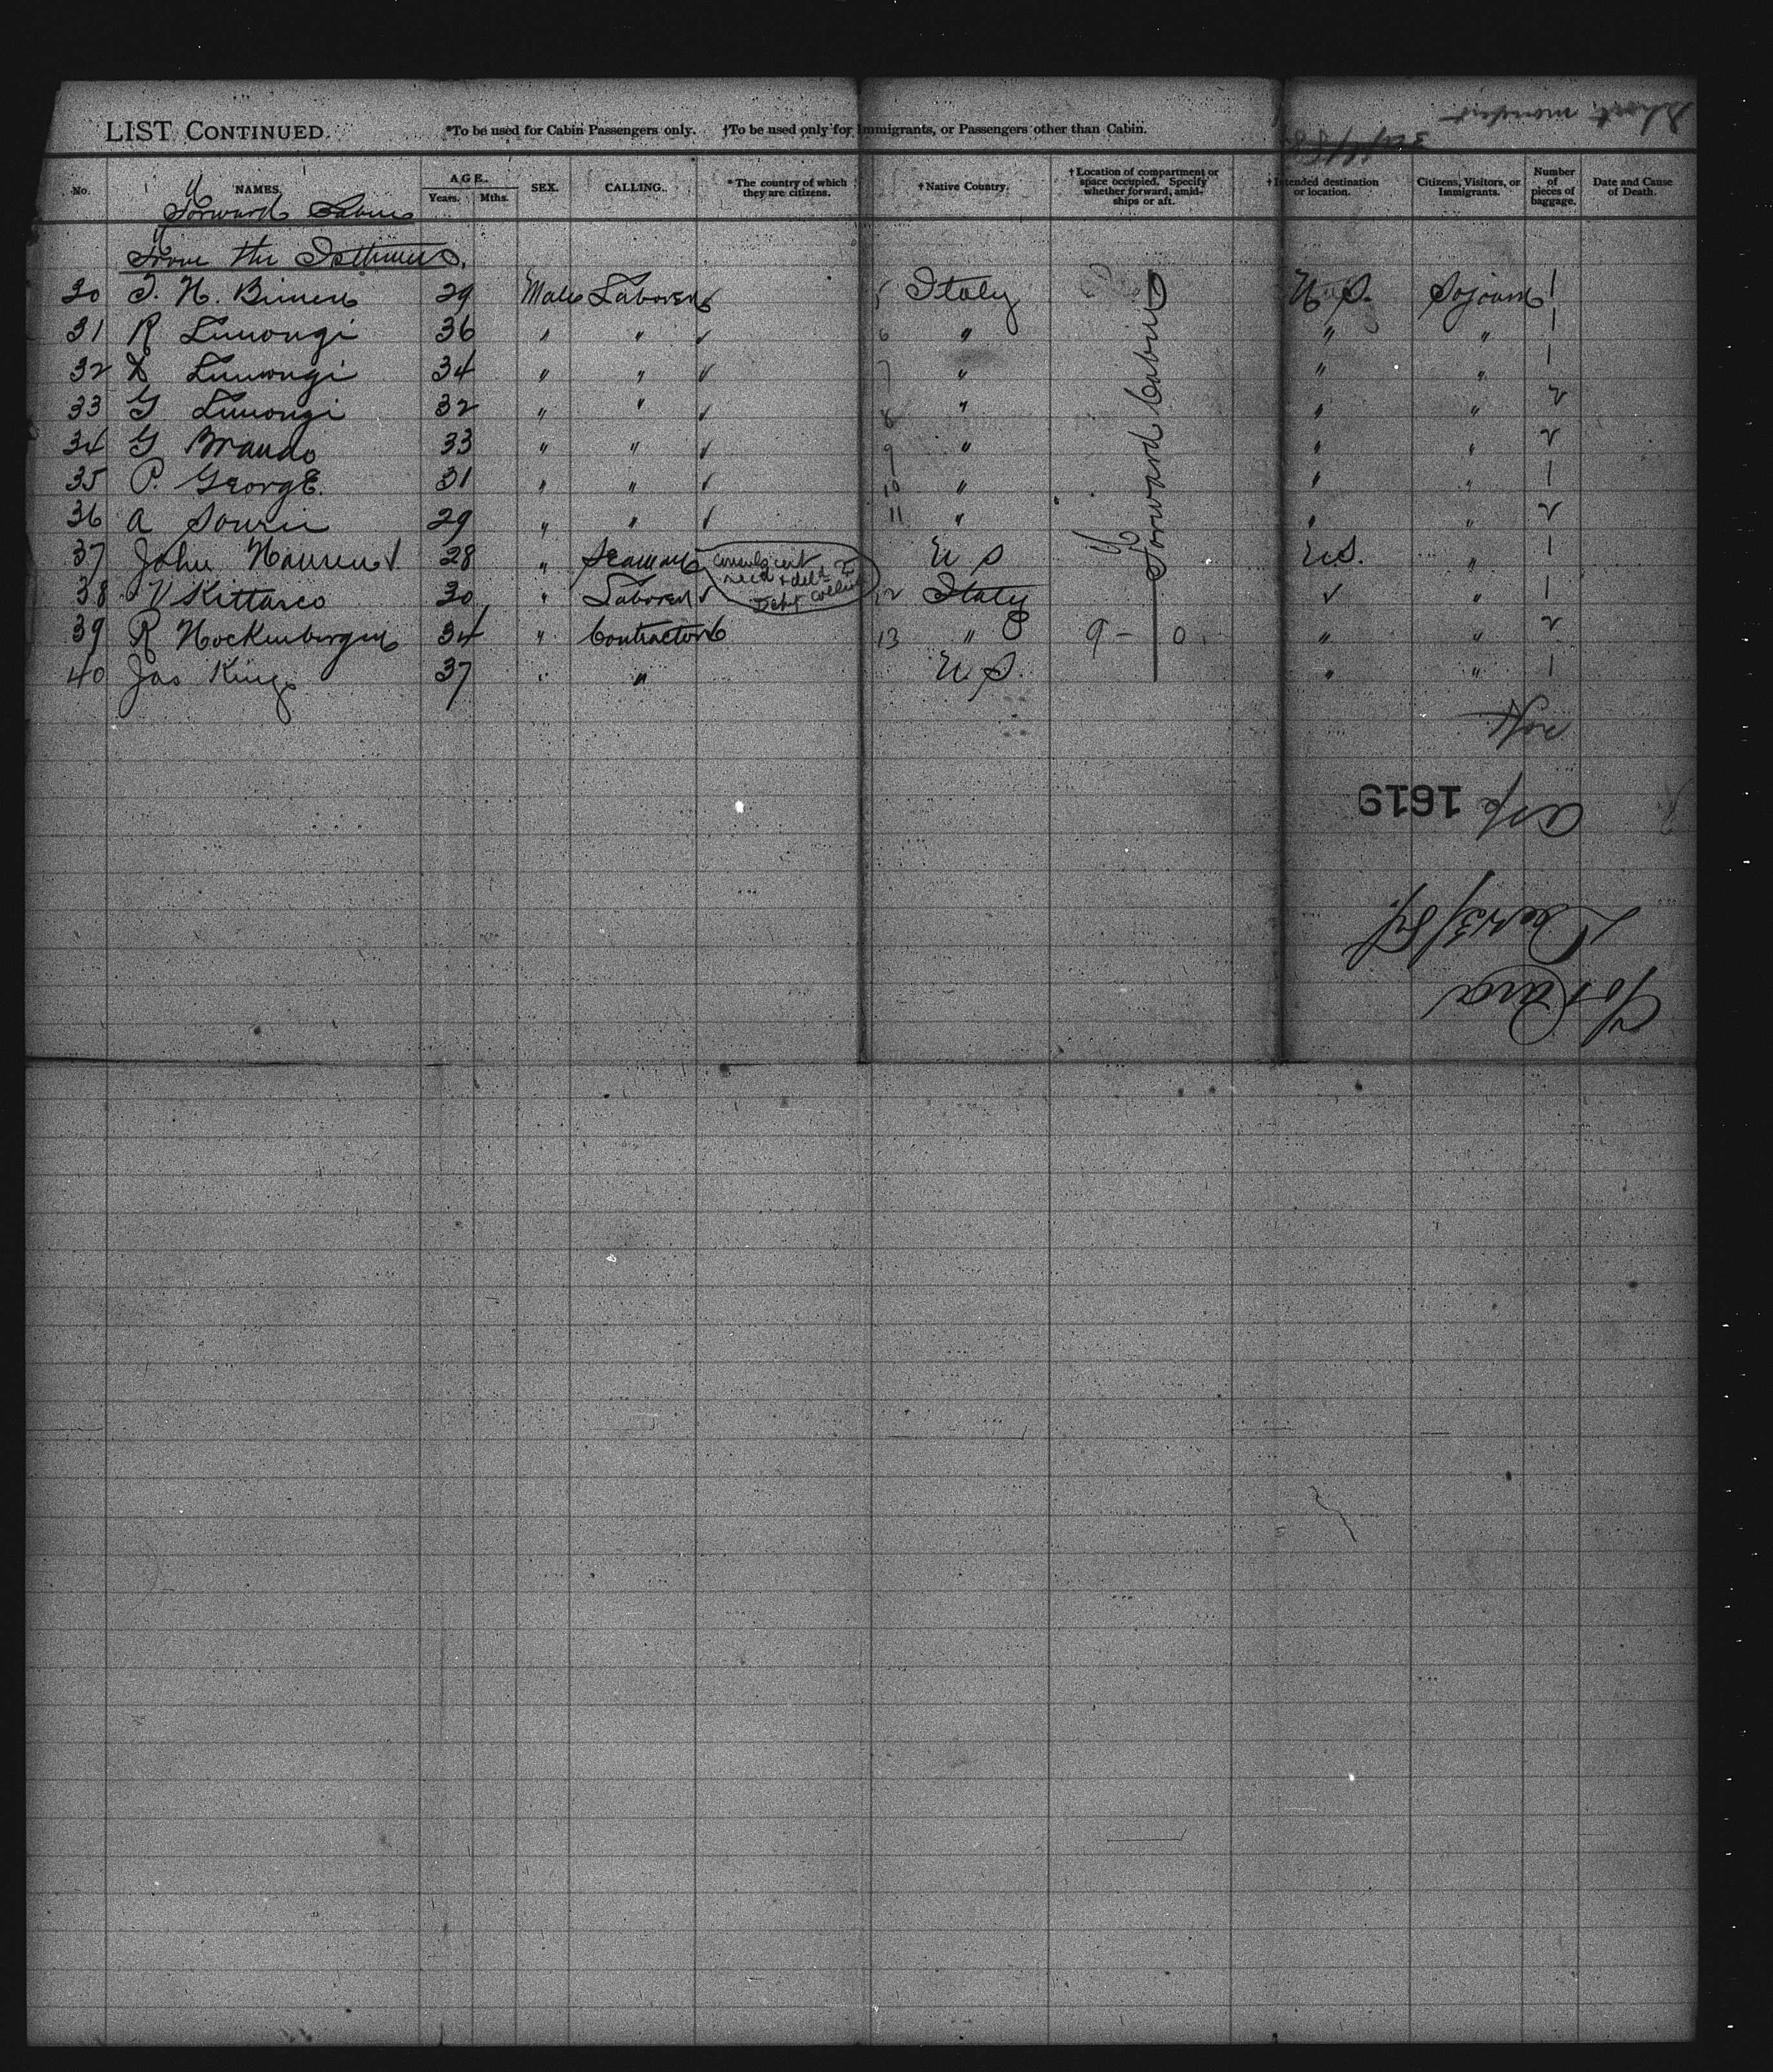 LIST CONTINUED. *To be used for Cabin Passengers only. †To be used only for Immigrants, or Passengers other than Cabin.
No. NAMES. AGE. Years. Mths. SEX. CALLING. *The country of which they are citizens. †Native Country. †Location of compartment or space occupied. Specify whether forward, amidships or aft. †Intended destination or location. Citizens, Visitors, or Immigrants. Number of pieces of baggage. Date and Cause of Death.
Forward Cabin
From the Isthmus.
30 29 Male Laborer 5 Italy U.S. Sojourn 1
31 R Limongi 36 " " 6 " " " 1
32 Limongi 34 " " 7 " " " 1
33 G Limongi 32 " " 8 " " " 2
34 G Brando 33 " " 9 " " " 2
35 P. George. 31 " " 10 " " " 1
36 A 29 " " 11 " " " 2
37 John 28 " Seaman U S U.S. " 1
38 V Kittarco 30 " Laborer 12 Italy " 1
39 R Hockenberger 34 " Contractor 13 " 9 - 0 " " 2
40 Jas King 37 " " U S. " " 1
Forward Cabin
1619